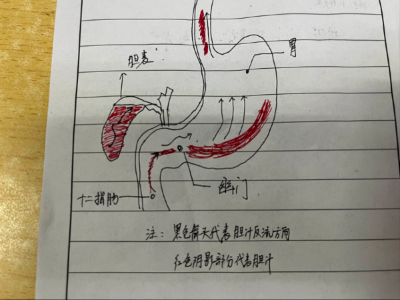 胆囊
胃
幽门
十二指肠
注：黑色箭头代表胆汁反流方向
红色阴影部分代表胆汁